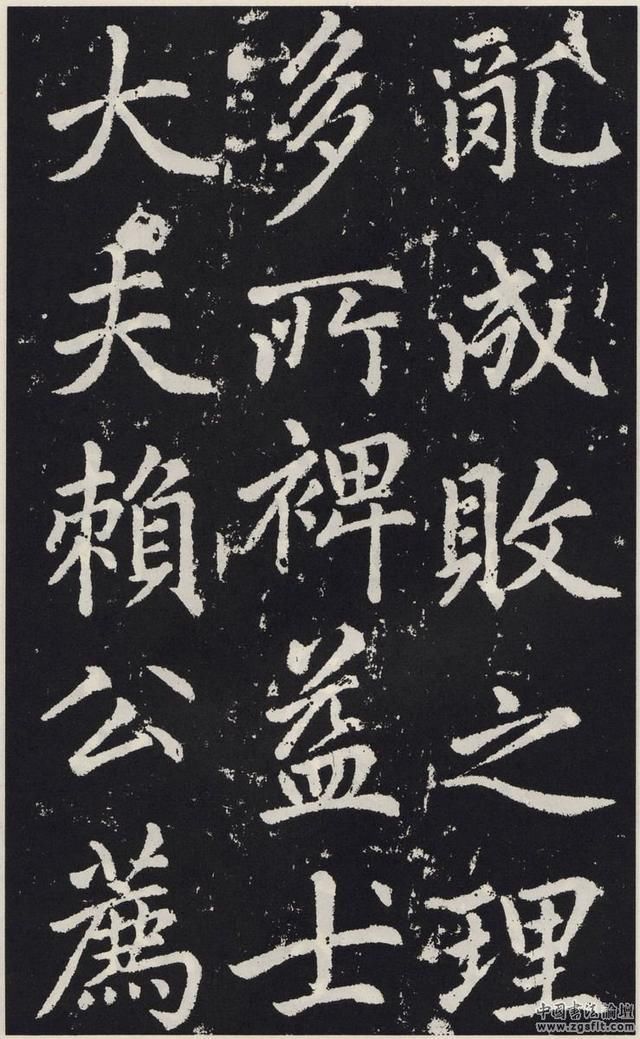 亂成敗之理
多所裨益士
大夫賴公薦
中国书法論壇
www.zgsflt.com